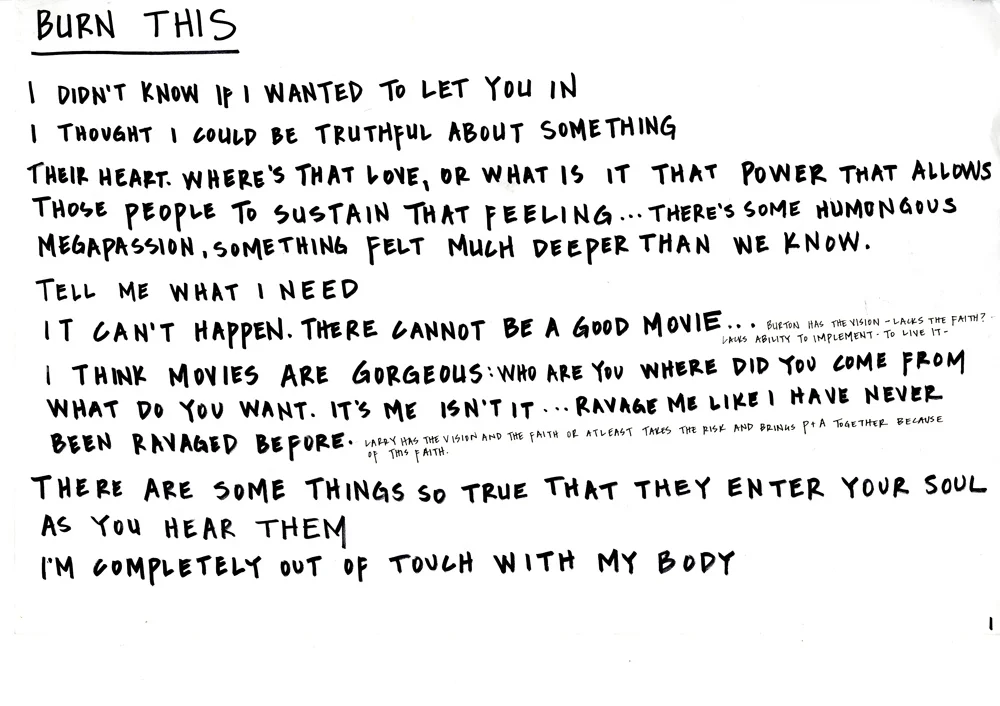 BURN THIS
I DIDN'T KNOW IF I WANTED TO LET YOU IN
I THOUGHT I COULD BE TRUTHFUL ABOUT SOMETHING
THEIR HEART. WHERE'S THAT LOVE, OR WHAT IS IT THAT POWER THAT ALLOWS
THOSE PEOPLE TO SUSTAIN THAT FEELING... THERE'S SOME HUMONGOUS
MEGAPASSION, SOMETHING FELT MUCH DEEPER THAN WE KNOW.
TELL ME WHAT I NEED
IT CAN'T HAPPEN. THERE CANNOT BE A GOOD MOVIE... BURTON HAS THE VISION - LACKS THE FAITH? -
LACKS ABILITY TO IMPLEMENT - TO LIVE IT -
I THINK MOVIES ARE GORGEOUS: WHO ARE YOU WHERE DID YOU COME FROM
WHAT DO YOU WANT. IT'S ME ISN'T IT... RAVAGE ME LIKE I HAVE NEVER
BEEN RAVAGED BEFORE. LARRY HAS THE VISION AND THE FAITH OR ATLEAST TAKES THE RISK AND BRINGS P+A TOGETHER BECAUSE
OF THIS FAITH.
THERE ARE SOME THINGS SO TRUE THAT THEY ENTER YOUR SOUL
AS YOU HEAR THEM
I'M COMPLETELY OUT OF TOUCH WITH MY BODY
1